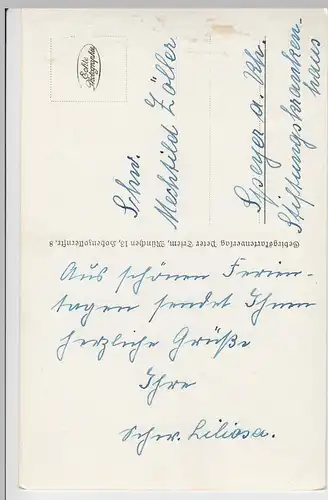 Echte
Photographie
Schw.
Mechtild Zöller
Speyer a. Rh.
Stiftungskranken-
haus
Gebirgskartenverlag Peter Triem, München 13, Hohenzollernstr. 8
Aus schönen Ferien-
tagen sendet Ihnen
herzliche Grüße
Ihre
Schw. Liliosa.